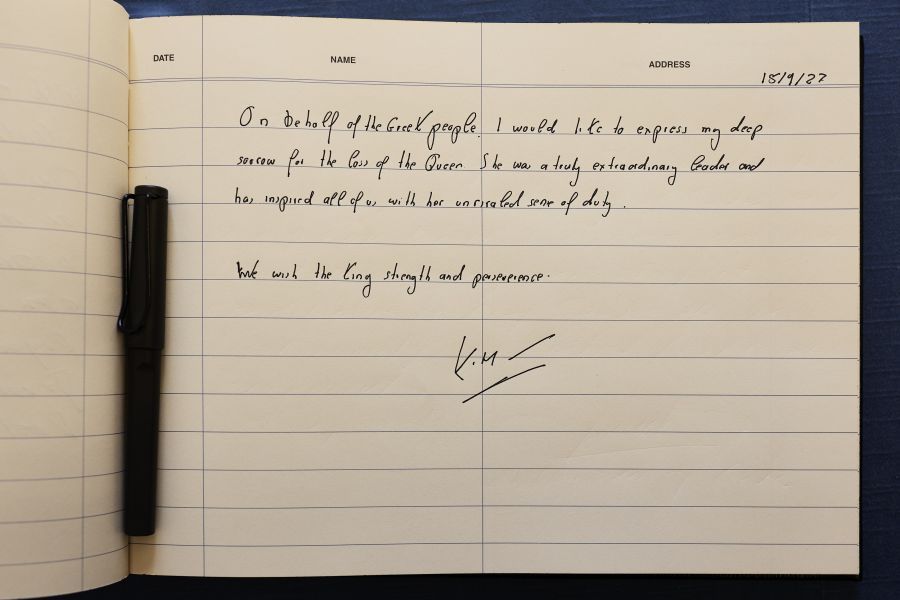 DATE NAME ADDRESS
15/9/22
On behalf of the Greek people, I would like to express my deep
sorrow for the loss of the Queen. She was a truly extraordinary leader and
has inspired all of us with her unrivaled sense of duty.
We wish the King strength and perseverence.
K.M